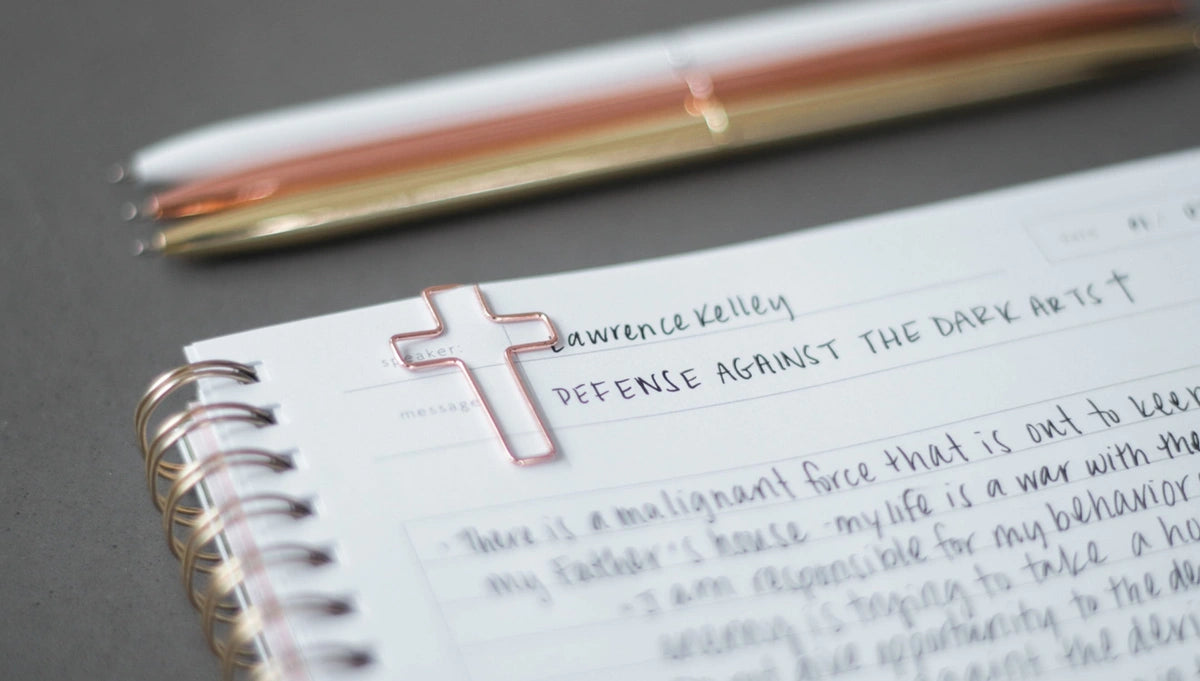 date 01/
speaker: Lawrence Kelley
message DEFENSE AGAINST THE DARK ARTS†
· There is a malignant force that is out to keep
my Father's house - my life is a war with the
- I am responsible for my behavior
enemy is trying to take a
give opportunity to the
against the devil